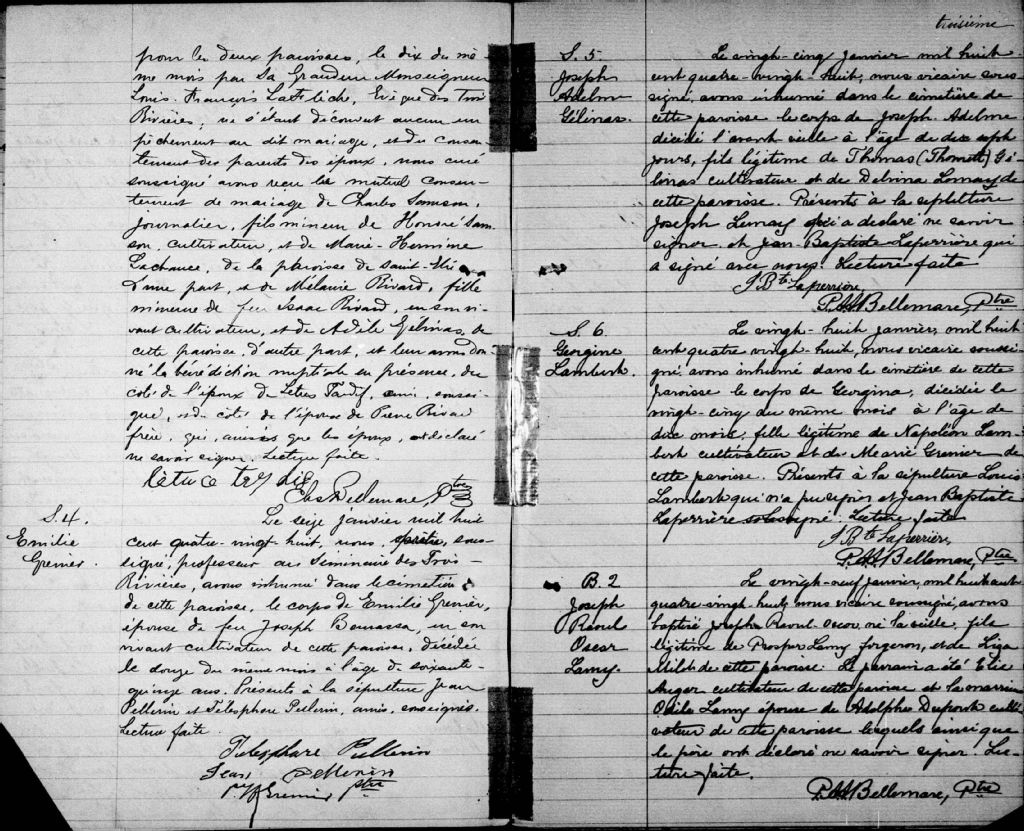 pour les deux paroisses, le dix du mê-
me mois par Sa Grandeur Monseigneur
Louis-François Laflèche, Evêque des Trois
Rivières; ne s'étant découvert aucun em
pêchement au dit mariage, et du consen
tement des parents des époux, nous curé
soussigné avons reçu leur mutuel consen-
tement de mariage de Charles Samson,
journalier, fils mineur de Honoré Sam
son, cultivateur, et de Marie-Hermine
Lachance, de la paroisse de saint
d'une part, et de Mélanie Rivard, fille
mineure de feu Isaac Rivard, en son vi
vant cultivateur, et de Adèle Gélinas, de
cette paroisse, d'autre part, et leur avons don-
né la bénédiction nuptiale en présence, du
coté de l'époux de ami, soussi-
gné, et du coté de l'épouse de Pierre Rivard
frère, qui, ainsi que les époux, ont déclaré
ne savoir signer. Lecture faite.
Bellemare, Ptre
S. 4.
Emilie
Grenier.
Le seize janvier mil huit
cent quatre-vingt huit, nous, prêtre, sous-
signé, professeur au Séminaire des Trois-
Rivières, avons inhumé dans le cimetière
de cette paroisse, le corps de Emilie Grenier,
épouse de feu Joseph Bourassa, en son
vivant cultivateur de cette paroisse, décédée
le douze du même mois à l'âge de soixante-
quinze ans. Présents à la sépulture Jean
Pellerin et Télesphore Pellerin, amis, soussignés.
Lecture faite.
Télesphore Pellerin
Jean Pellerin
Grenier Ptre
troisième
S. 5
Joseph
Adelme
Gélinas.
Le vingt-cinq janvier mil huit
cent quatre-vingt-huit, nous vicaire sous
signé, avons inhumé dans le cimetière de
cette paroisse le corps de Joseph Adelme
décédé l'avant veille à l'âge de dix sept
jours, fils légitime de Thomas (Thomett) Gé-
linas cultivateur et de Delvina Lemay de
cette paroisse. Présents à la sépulture
Joseph Lemay qui a déclaré ne savoir
signer et Jean-Baptiste Laperrière qui
a signé avec nous. Lecture faite
J. Bte Laperrière,
Bellemare, Ptre
S. 6
Georgine
Lambert.
Le vingt-huit janvier, mil huit
cent quatre vingt-huit, nous vicaire soussi-
gné, avons inhumé dans le cimetière de cette
paroisse le corps de Georgina, décédée le
vingt-cinq du même mois à l'âge de
dix mois, fille légitime de Napoléon Lam
bert cultivateur et de Marie Grenier de
cette paroisse. Présents à la sépulture Louis
Lambert qui n'a pu signer et Jean Baptiste
Laperrière soussigné. Lecture faite
J. Bte Laperrière,
Bellemare, Ptre
B. 2
Joseph
Raoul
Oscar
Lamy
Le vingt-neuf janvier, mil huit cent
quatre-vingt-huit, nous vicaire soussigné, avons
baptisé Joseph Raoul-Oscar, né la veille, fils
légitime de Prosper Lamy forgeron, et de Liza
Milot de cette paroisse. Le parrain a été Elie
Auger cultivateur de cette paroisse et la marraine
Odile Lamy épouse de Adolphe Dupont culti
vateur de cette paroisse lesquels ainsi que
le père ont déclaré ne savoir signer. Lec-
ture faite.
Bellemare, Ptre